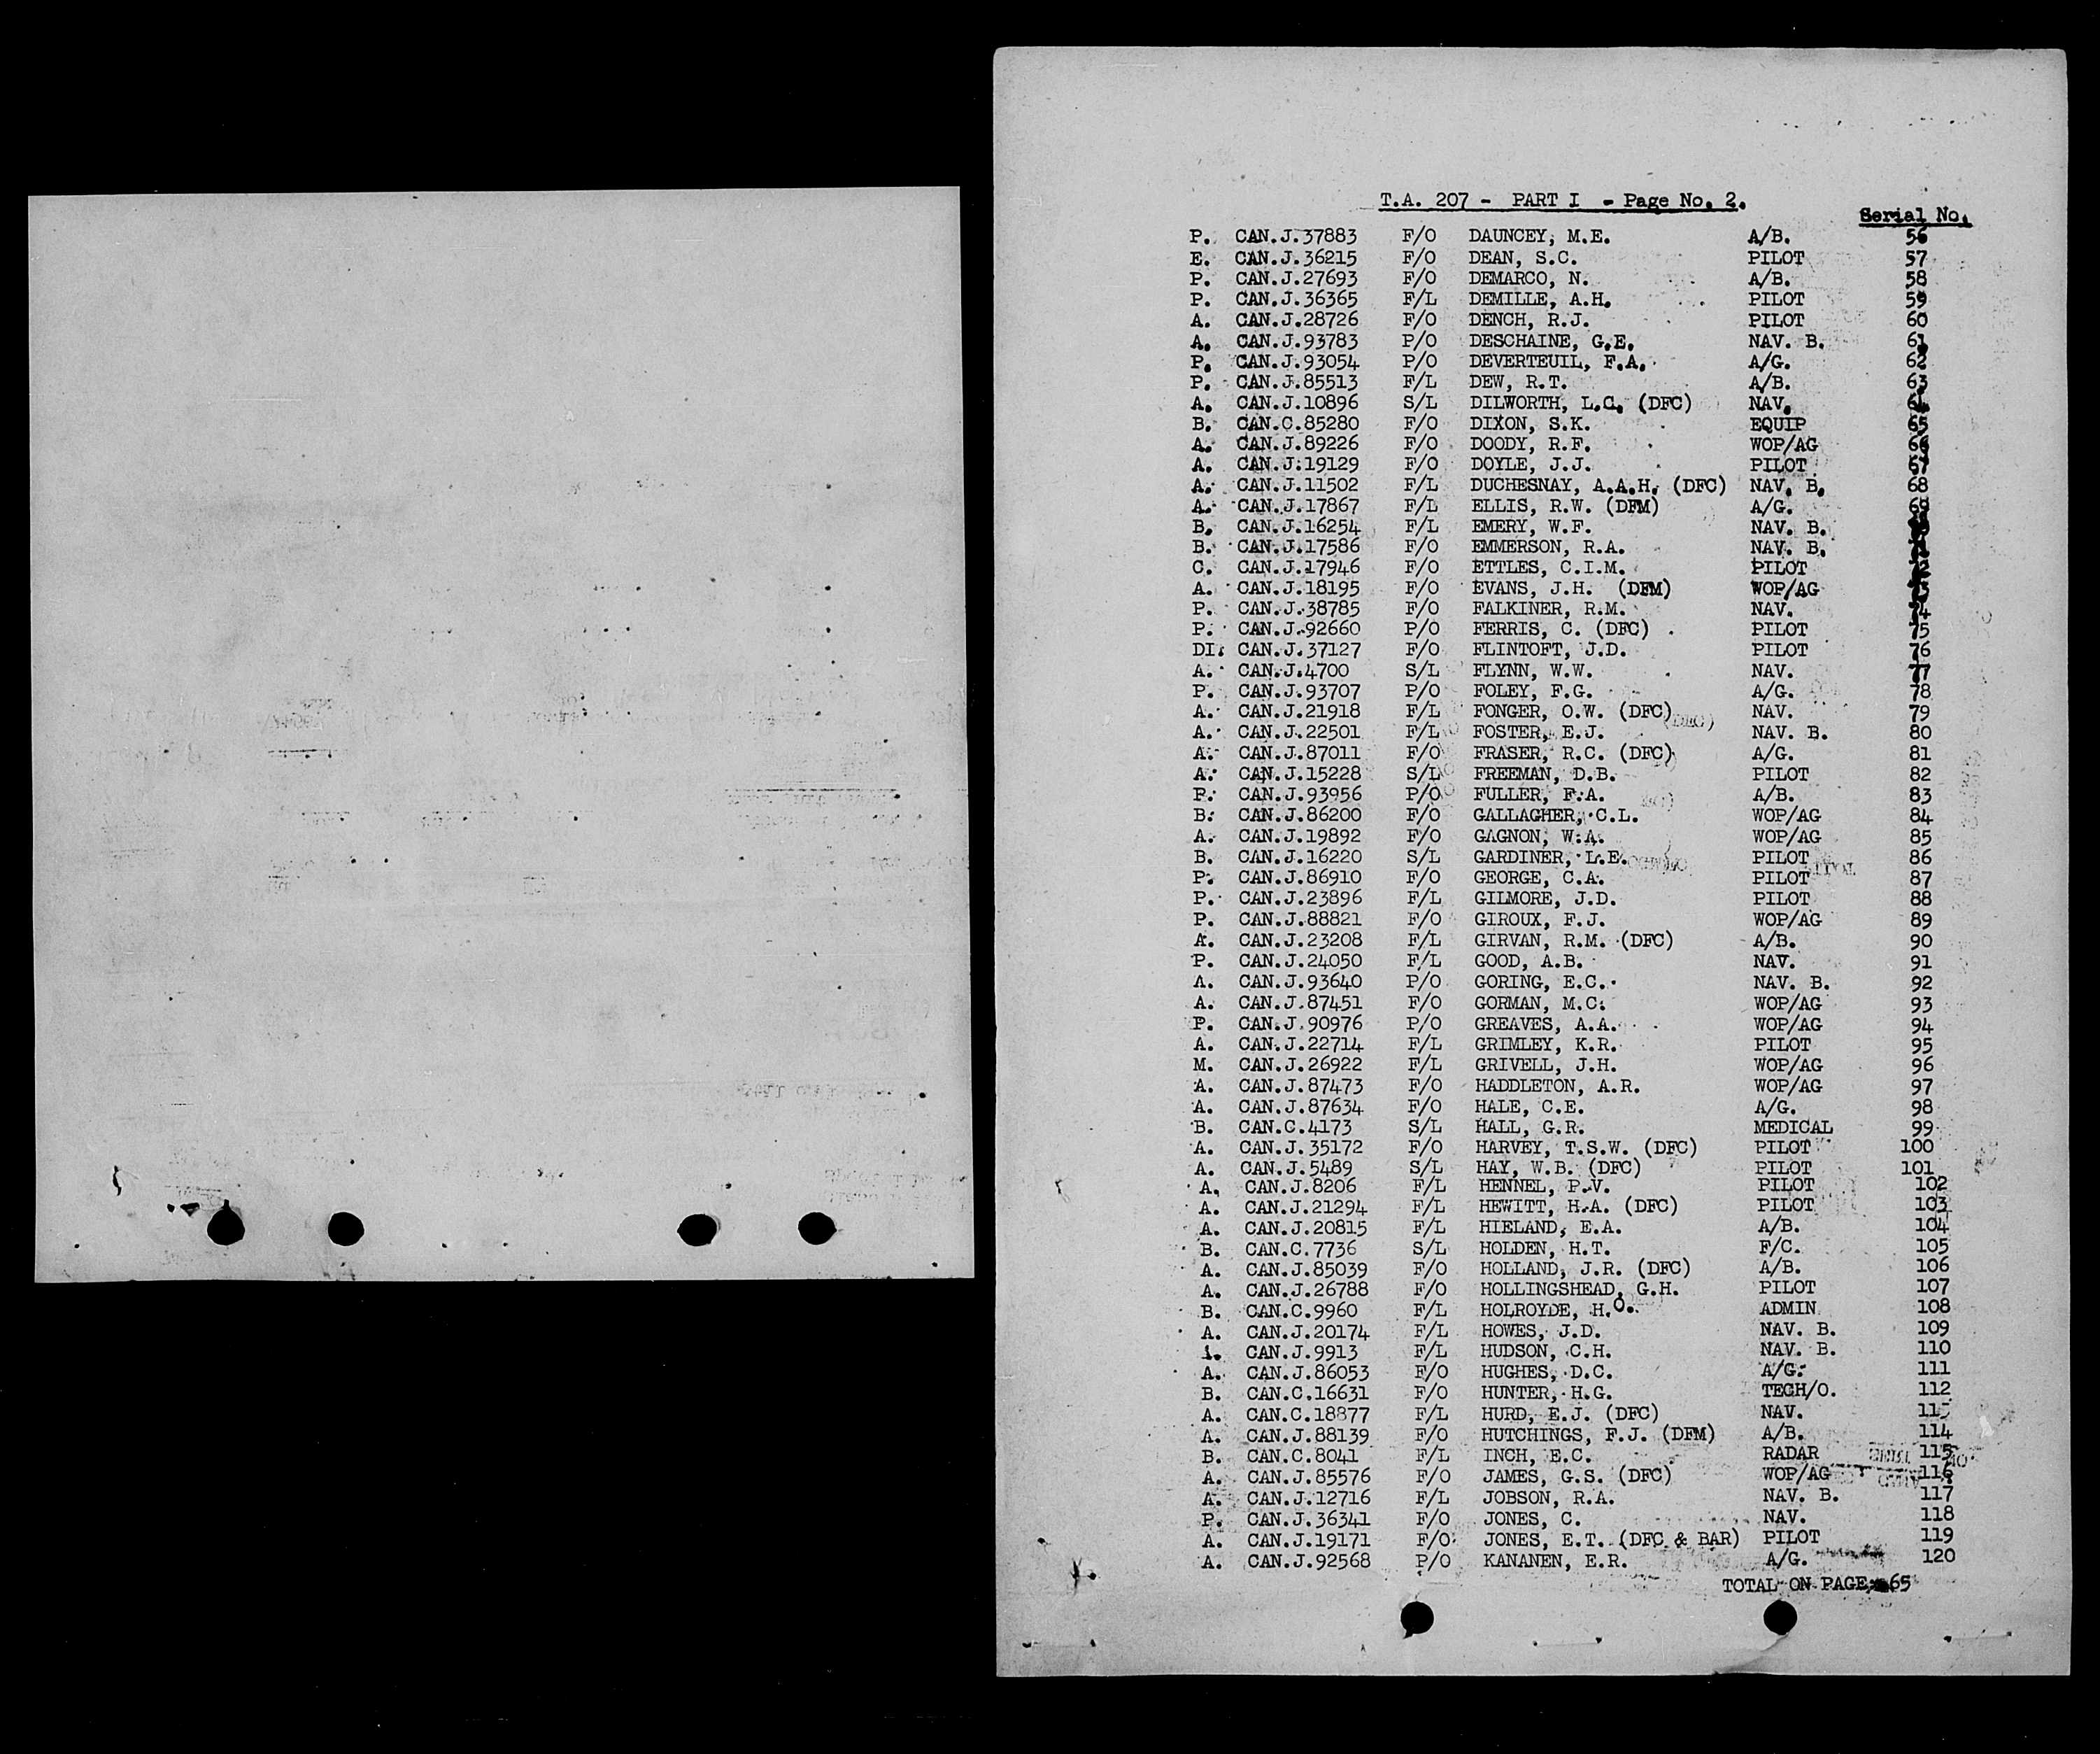 T.A. 207 - PART I - Page No. 2.
Serial No.
P. CAN.J.37883 F/O DAUNCEY, M.E. A/B. 56
E. CAN.J.36215 F/O DEAN, S.C. PILOT 57
P. CAN.J.27693 F/O DEMARCO, N. A/B. 58
P. CAN.J.36365 F/L DEMILLE, A.H. PILOT 59
A. CAN.J.28726 F/O DENCH, R.J. PILOT 60
A. CAN.J.93783 P/O DESCHAINE, G.E. NAV. B. 61
P. CAN.J.93054 P/O DEVERTEUIL, F.A. A/G. 62
P. CAN.J.85513 F/L DEW, R.T. A/B. 63
A. CAN.J.10896 S/L DILWORTH, L.C. (DFC) NAV. 64
B. CAN.C.85280 F/O DIXON, S.K. EQUIP 65
A. CAN.J.89226 F/O DOODY, R.F. WOP/AG 66
A. CAN.J.19129 F/O DOYLE, J.J. PILOT 67
A. CAN.J.11502 F/L DUCHESNAY, A.A.H. (DFC) NAV. B. 68
A. CAN.J.17867 F/L ELLIS, R.W. (DFM) A/G. 69
B. CAN.J.16254 F/L EMERY, W.F. NAV. B.
B. CAN.J.17586 F/O EMMERSON, R.A. NAV. B.
C. CAN.J.17946 F/O ETTLES, C.I.M. PILOT
A. CAN.J.18195 F/O EVANS, J.H. (DFM) WOP/AG
P. CAN.J.38785 F/O FALKINER, R.M. NAV. 74
P. CAN.J.92660 P/O FERRIS, C. (DFC) PILOT 75
DI. CAN.J.37127 F/O FLINTOFT, J.D. PILOT 76
A. CAN.J.4700 S/L FLYNN, W.W. NAV. 77
P. CAN.J.93707 P/O FOLEY, F.G. A/G. 78
A. CAN.J.21918 F/L FONGER, O.W. (DFC) NAV. 79
A. CAN.J.22501 F/L FOSTER, E.J. NAV. B. 80
A. CAN.J.87011 F/O FRASER, R.C. (DFC) A/G. 81
A. CAN.J.15228 S/L FREEMAN, D.B. PILOT 82
P. CAN.J.93956 P/O FULLER, F.A. A/B. 83
B. CAN.J.86200 F/O GALLAGHER, C.L. WOP/AG 84
A. CAN.J.19892 F/O GAGNON, W.A. WOP/AG 85
B. CAN.J.16220 S/L GARDINER, L.E. PILOT 86
P. CAN.J.86910 F/O GEORGE, C.A. PILOT 87
P. CAN.J.23896 F/L GILMORE, J.D. PILOT 88
P. CAN.J.88821 F/O GIROUX, F.J. WOP/AG 89
A. CAN.J.23208 F/L GIRVAN, R.M. (DFC) A/B. 90
P. CAN.J.24050 F/L GOOD, A.B. NAV. 91
A. CAN.J.93640 P/O GORING, E.C. NAV. B. 92
A. CAN.J.87451 F/O GORMAN, M.C. WOP/AG 93
P. CAN.J.90976 P/O GREAVES, A.A. WOP/AG 94
A. CAN.J.22714 F/L GRIMLEY, K.R. PILOT 95
M. CAN.J.26922 F/L GRIVELL, J.H. WOP/AG 96
A. CAN.J.87473 F/O HADDLETON, A.R. WOP/AG 97
A. CAN.J.87634 F/O HALE, C.E. A/G. 98
B. CAN.C.4173 S/L HALL, G.R. MEDICAL 99
A. CAN.J.35172 F/O HARVEY, T.S.W. (DFC) PILOT 100
A. CAN.J.5489 S/L HAY, W.B. (DFC) PILOT 101
A. CAN.J.8206 F/L HENNEL, P.V. PILOT 102
A. CAN.J.21294 F/L HEWITT, H.A. (DFC) PILOT 103
A. CAN.J.20815 F/L HIELAND, E.A. A/B. 104
B. CAN.C.7736 S/L HOLDEN, H.T. F/C. 105
A. CAN.J.85039 F/O HOLLAND, J.R. (DFC) A/B. 106
A. CAN.J.26788 F/O HOLLINGSHEAD, G.H. PILOT 107
B. CAN.C.9960 F/L HOLROYDE, H.O. ADMIN 108
A. CAN.J.20174 F/L HOWES, J.D. NAV. B. 109
CAN.J.9913 F/L HUDSON, C.H. NAV. B. 110
A. CAN.J.86053 F/O HUGHES, D.C. A/G. 111
B. CAN.C.16631 F/O HUNTER, H.G. TECH/O. 112
A. CAN.C.18877 F/L HURD, E.J. (DFC) NAV.
A. CAN.J.88139 F/O HUTCHINGS, F.J. (DFM) A/B. 114
B. CAN.C.8041 F/L INCH, E.C. RADAR 115
A. CAN.J.85576 F/O JAMES, G.S. (DFC) WOP/AG 116
A. CAN.J.12716 F/L JOBSON, R.A. NAV. B. 117
P. CAN.J.36341 F/O JONES, C. NAV. 118
A. CAN.J.19171 F/O JONES, E.T. (DFC & BAR) PILOT 119
A. CAN.J.92568 P/O KANANEN, E.R. A/G. 120
TOTAL ON PAGE: 65